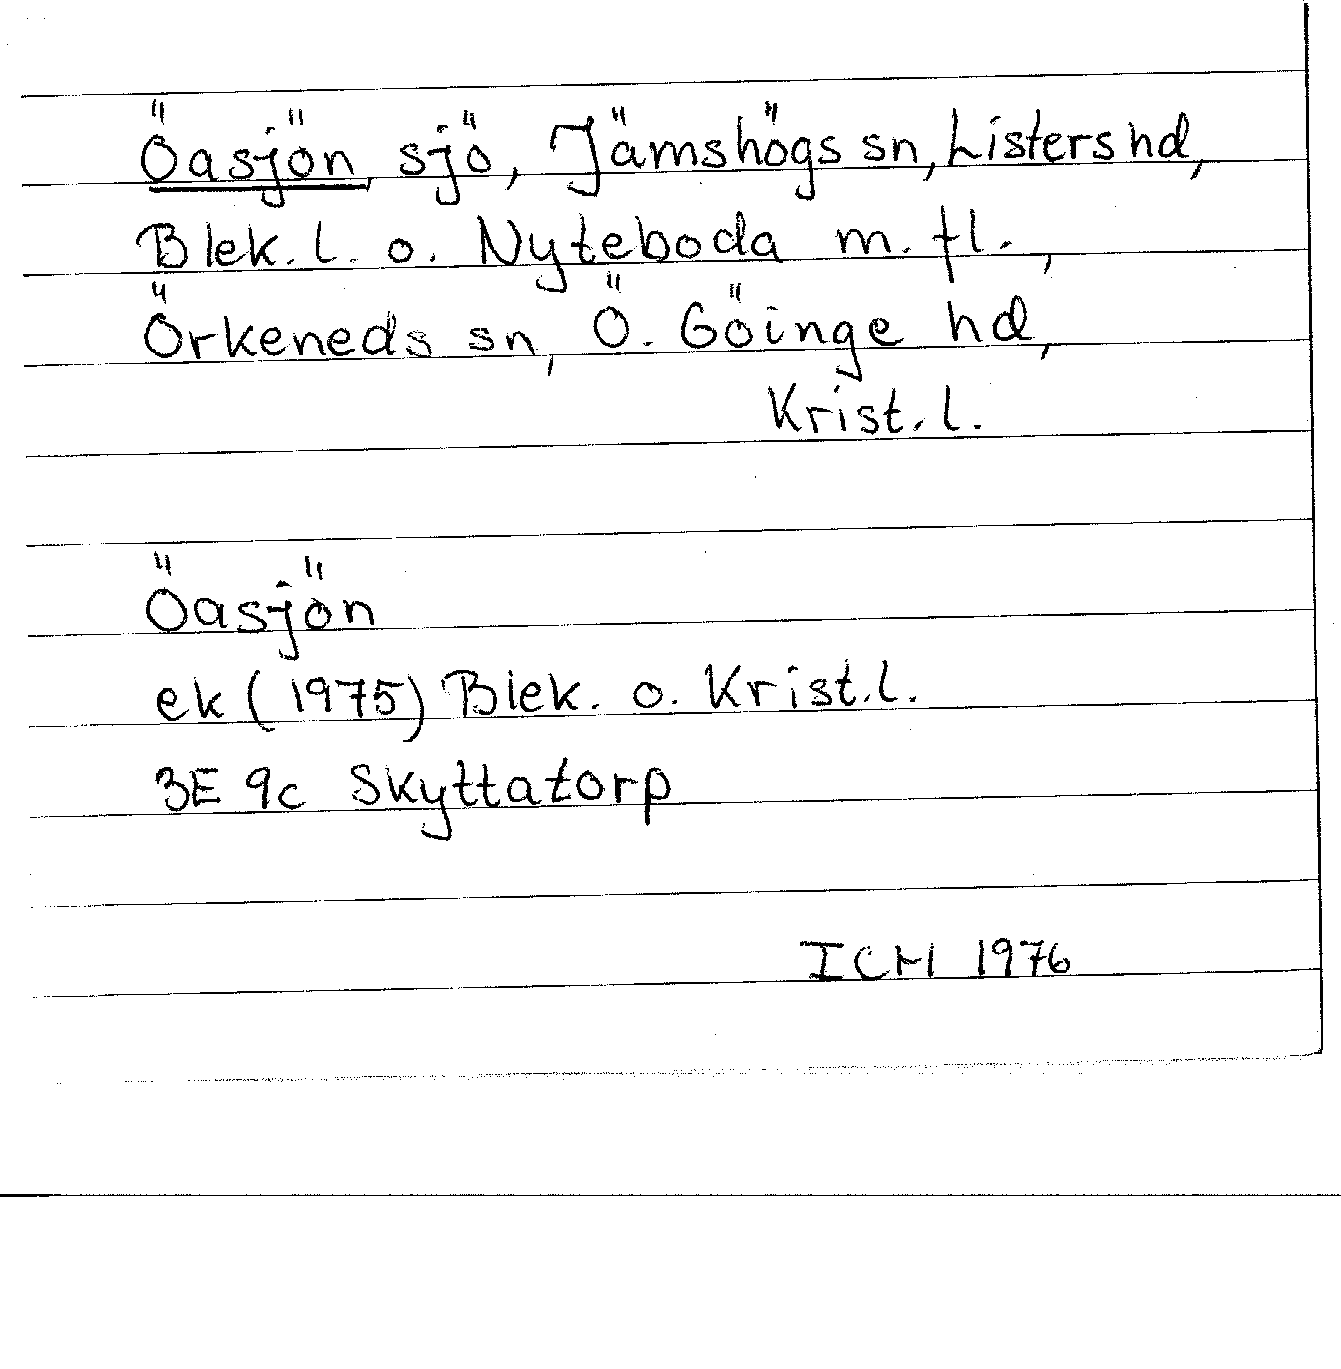 Öasjön, sjö, Jämshögs sn, Listers hd,
Blek. l. o. Nyteboda m. fl.,
Örkeneds sn, Ö. Göinge hd,
Krist. l.
Öasjön
ek (1975) Blek. o. Krist. l.
3E 9c Skyttatorp
ICM 1976